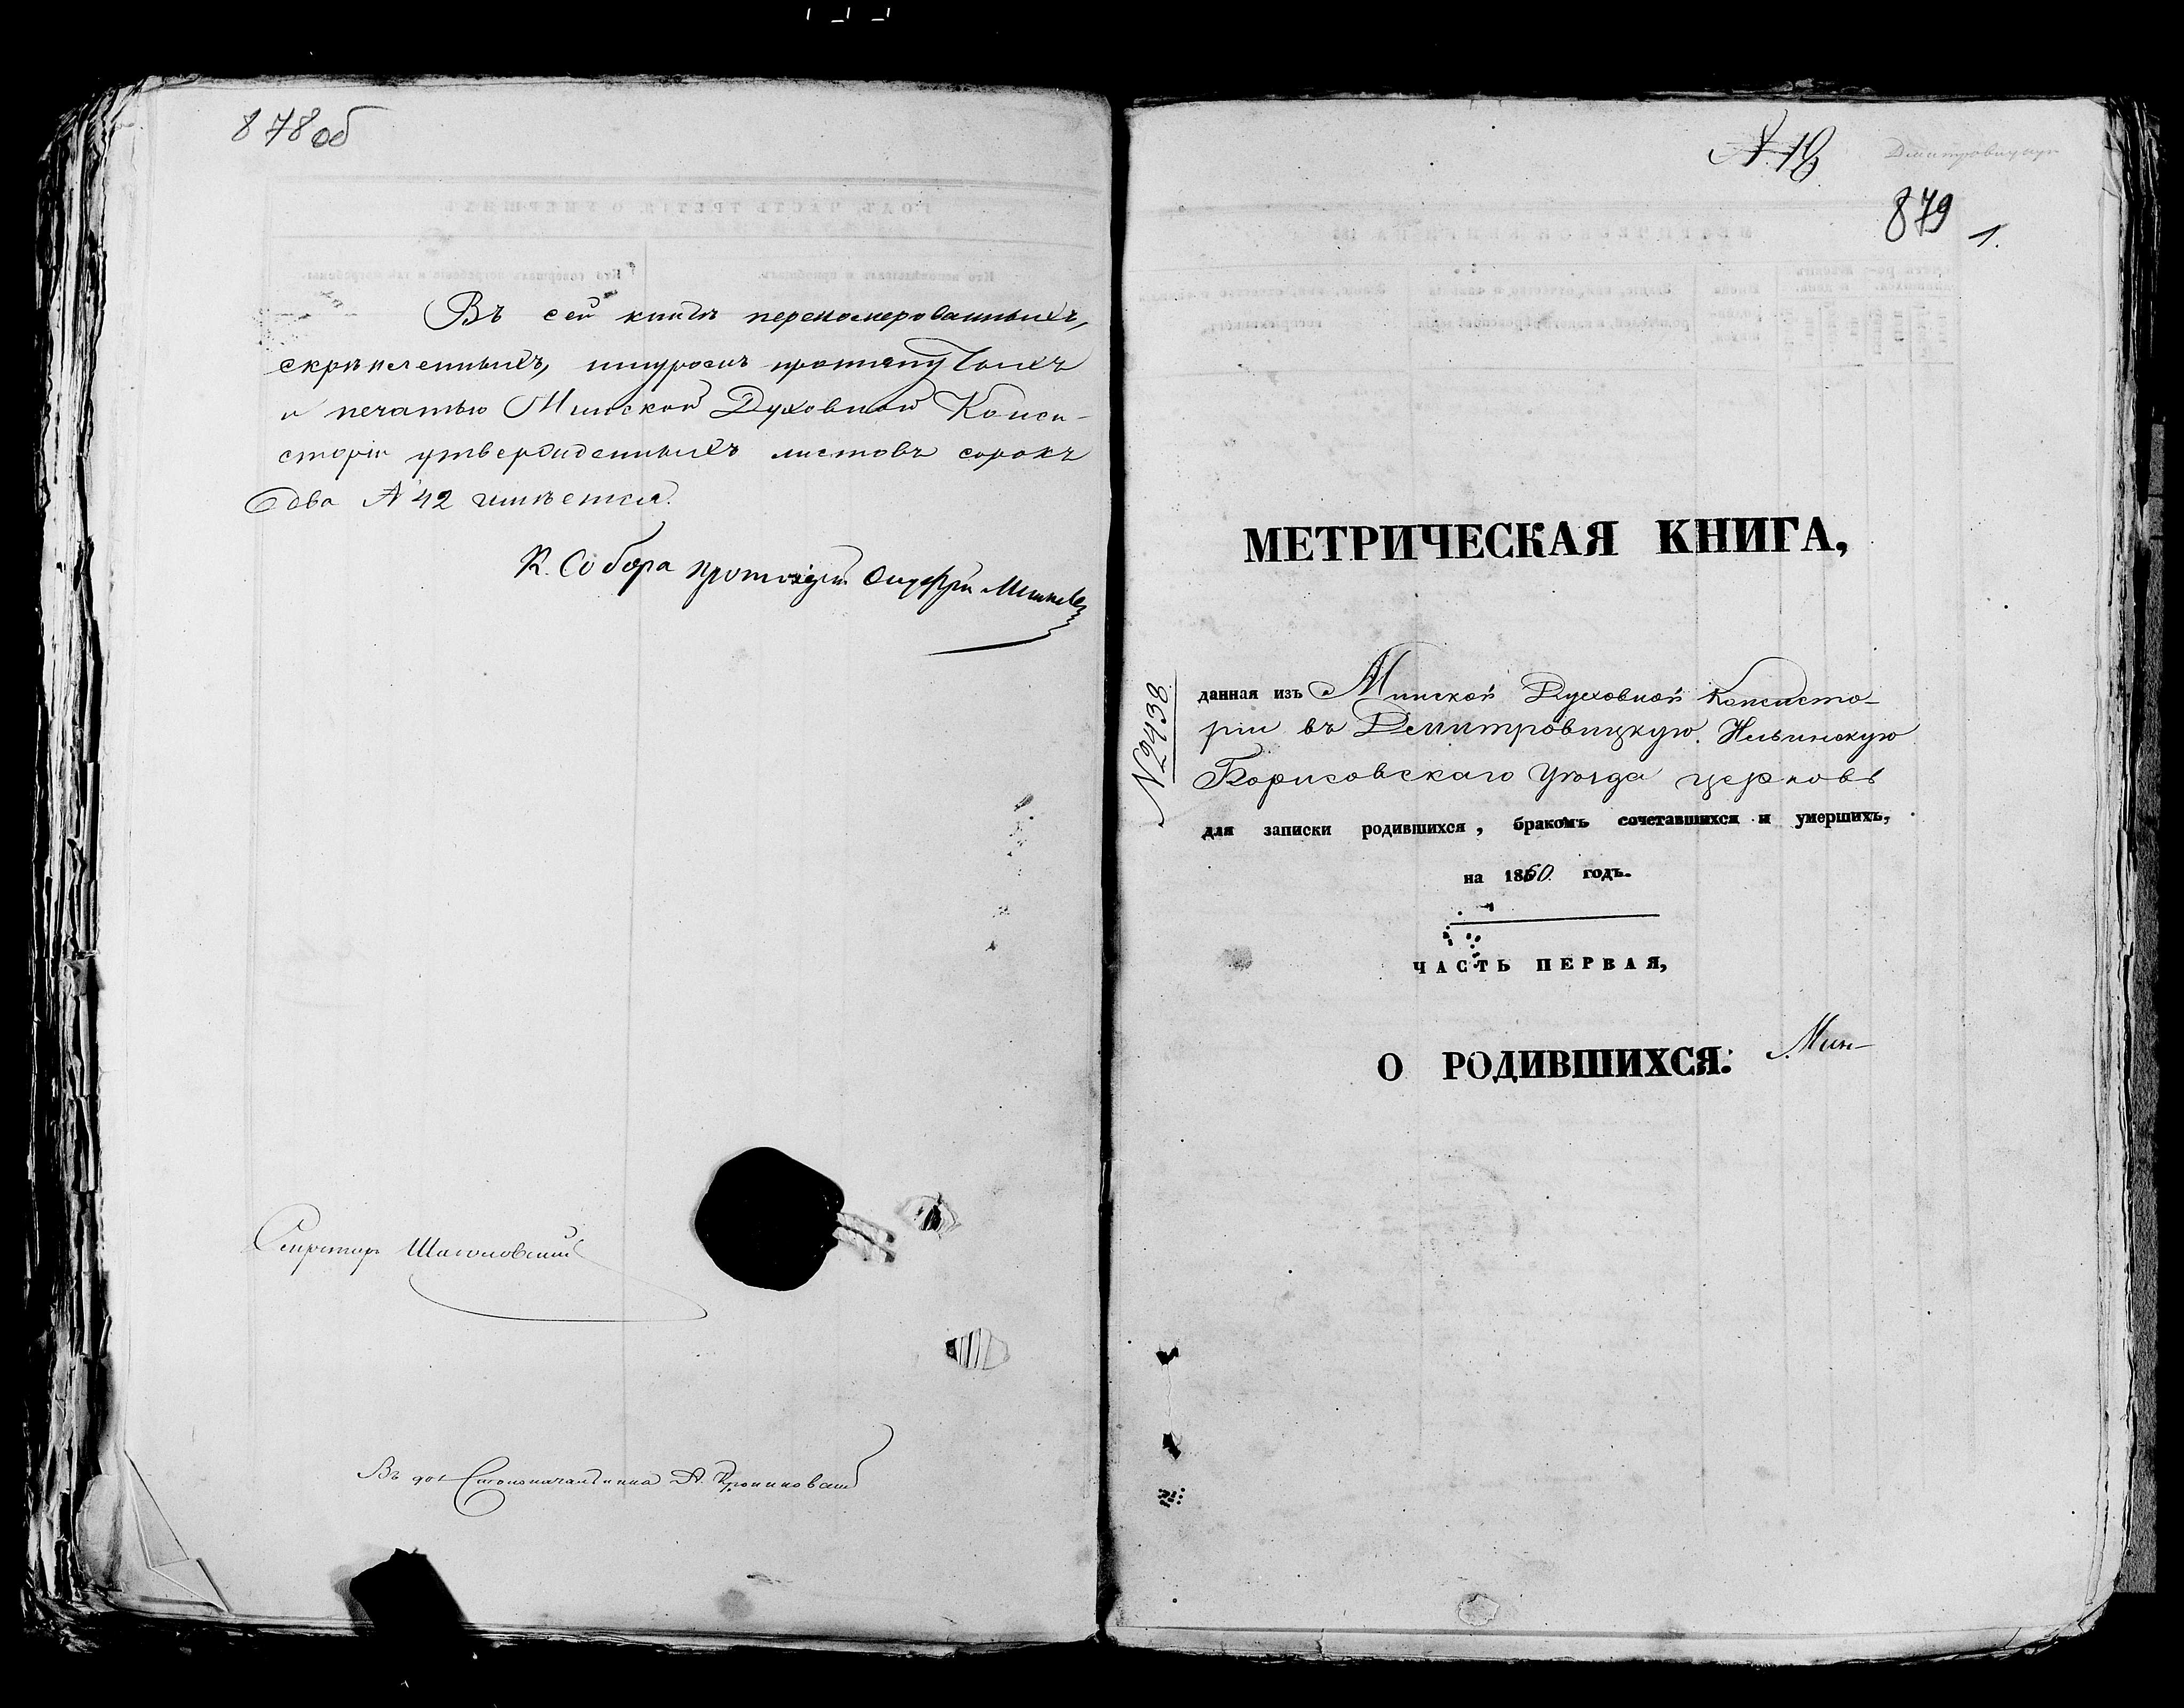 878 об
Въ сей книгѣ перенумерованныхъ,
скрѣпленныхъ, шнуромъ протянутыхъ
и печатью Минской Духовной Конси-
сторіи утвержденныхъ листовъ сорокъ
два № 42 имѣется.
К. Собора протоіерей
Секретарь
Въ дол. Столоначальника А.
№ 18
879
1.
МЕТРИЧЕСКАЯ КНИГА,
№ 2438
данная изъ Минской Духовной Консисто-
ріи въ Дмитровицкую Ильинскую
Борисовскаго уѣзда церковь
для записки родившихся, бракомъ сочетавшихся и умершихъ,
на 1860 годъ.
ЧАСТЬ ПЕРВАЯ,
О РОДИВШИХСЯ: Мин-